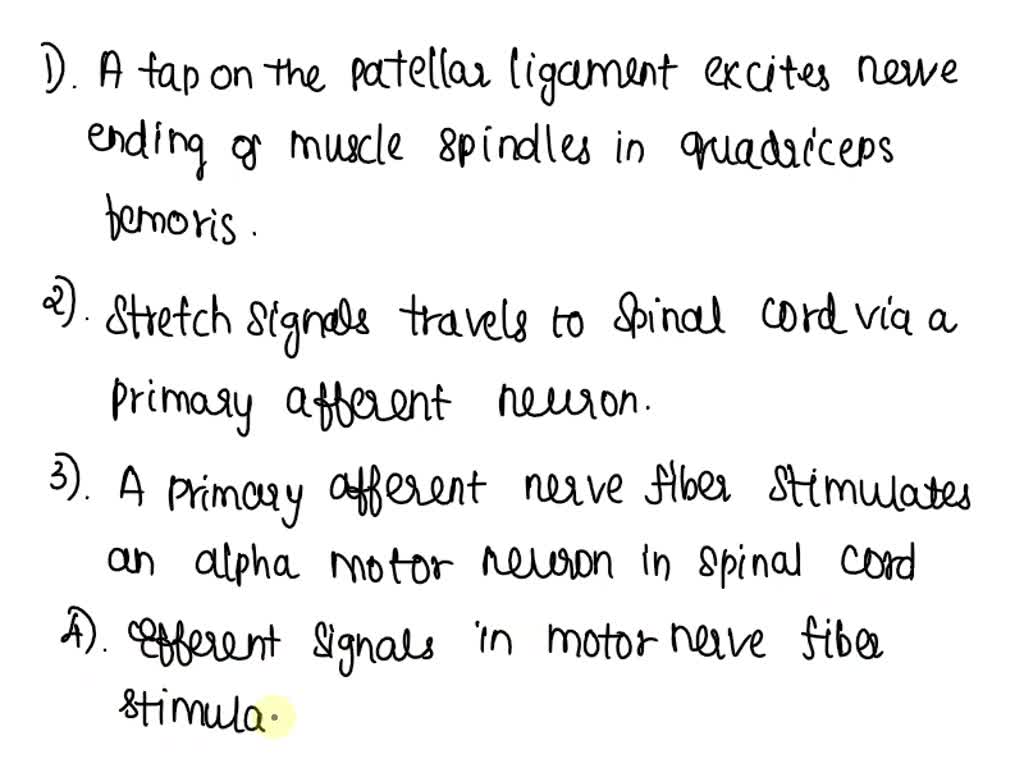 1). A tap on the patellar ligament excites nerve
ending of muscle spindles in quadriceps
femoris.
2). Stretch signals travels to spinal cord via a
primary afferent neuron.
3). A primary afferent nerve fiber stimulates
an alpha motor neuron in spinal cord
4). efferent signals in motor nerve fiber
stimula